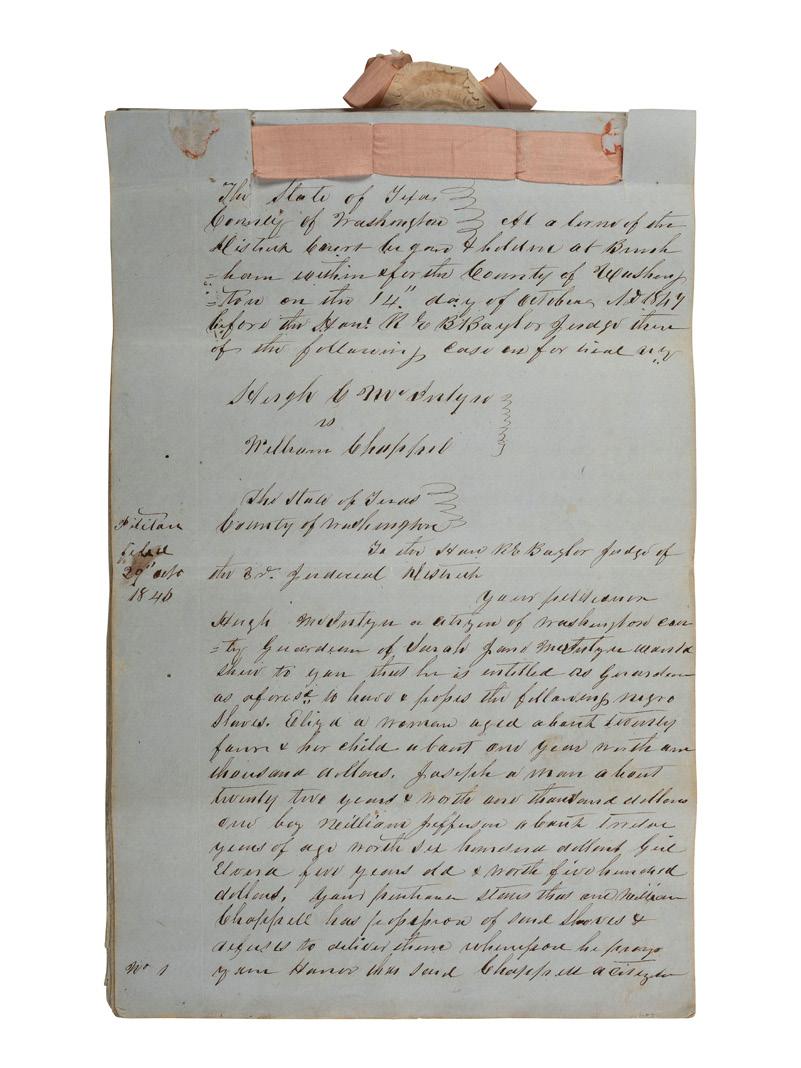 The State of Texas
County of Washington At a term of the
District Court begun & holden at Brenh
=ham within & for the County of Washing
=ton on the 14" day of October AD 1847
before the Hon. R E B Baylor Judge there
of the following case on for trial
Hugh C McIntyre
vs
William Chappel
The State of Texas
County of Washington
Petition
filed
29"
1846
To the Hon R E Baylor Judge of
the 3d. Judicial District
your petitioner
Hugh McIntyre a citizen of Washington coun
=ty Guardian of Sarah Jane McIntyre would
shew to you that he is entitled as Guardian
as aforesd. to have & posses the following negro
slaves. Eliza a woman aged about twenty
four & her child about one year worth one
thousand dollars. Joseph a man about
twenty two years & worth one thousand dollars
one boy William Jefferson about twelve
years of age worth six hundred dollars Girl
five years old & worth five hundred
dollars. your petitioner states that one William
Chappell has possession of said slaves &
refuses to deliver them whereupon he prays
your Honor that said Chappell a citizen
No 1